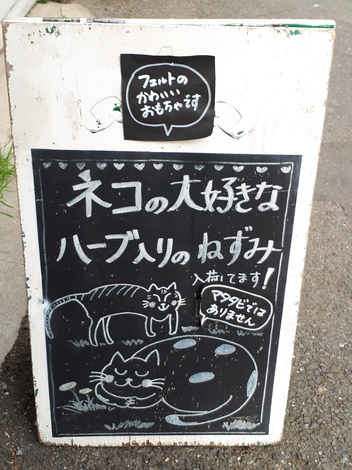 フェルトの
かわいい
おもちゃです
ネコの大好きな
ハーブ入りのねずみ
入荷してます!
マタタビでは
ありません